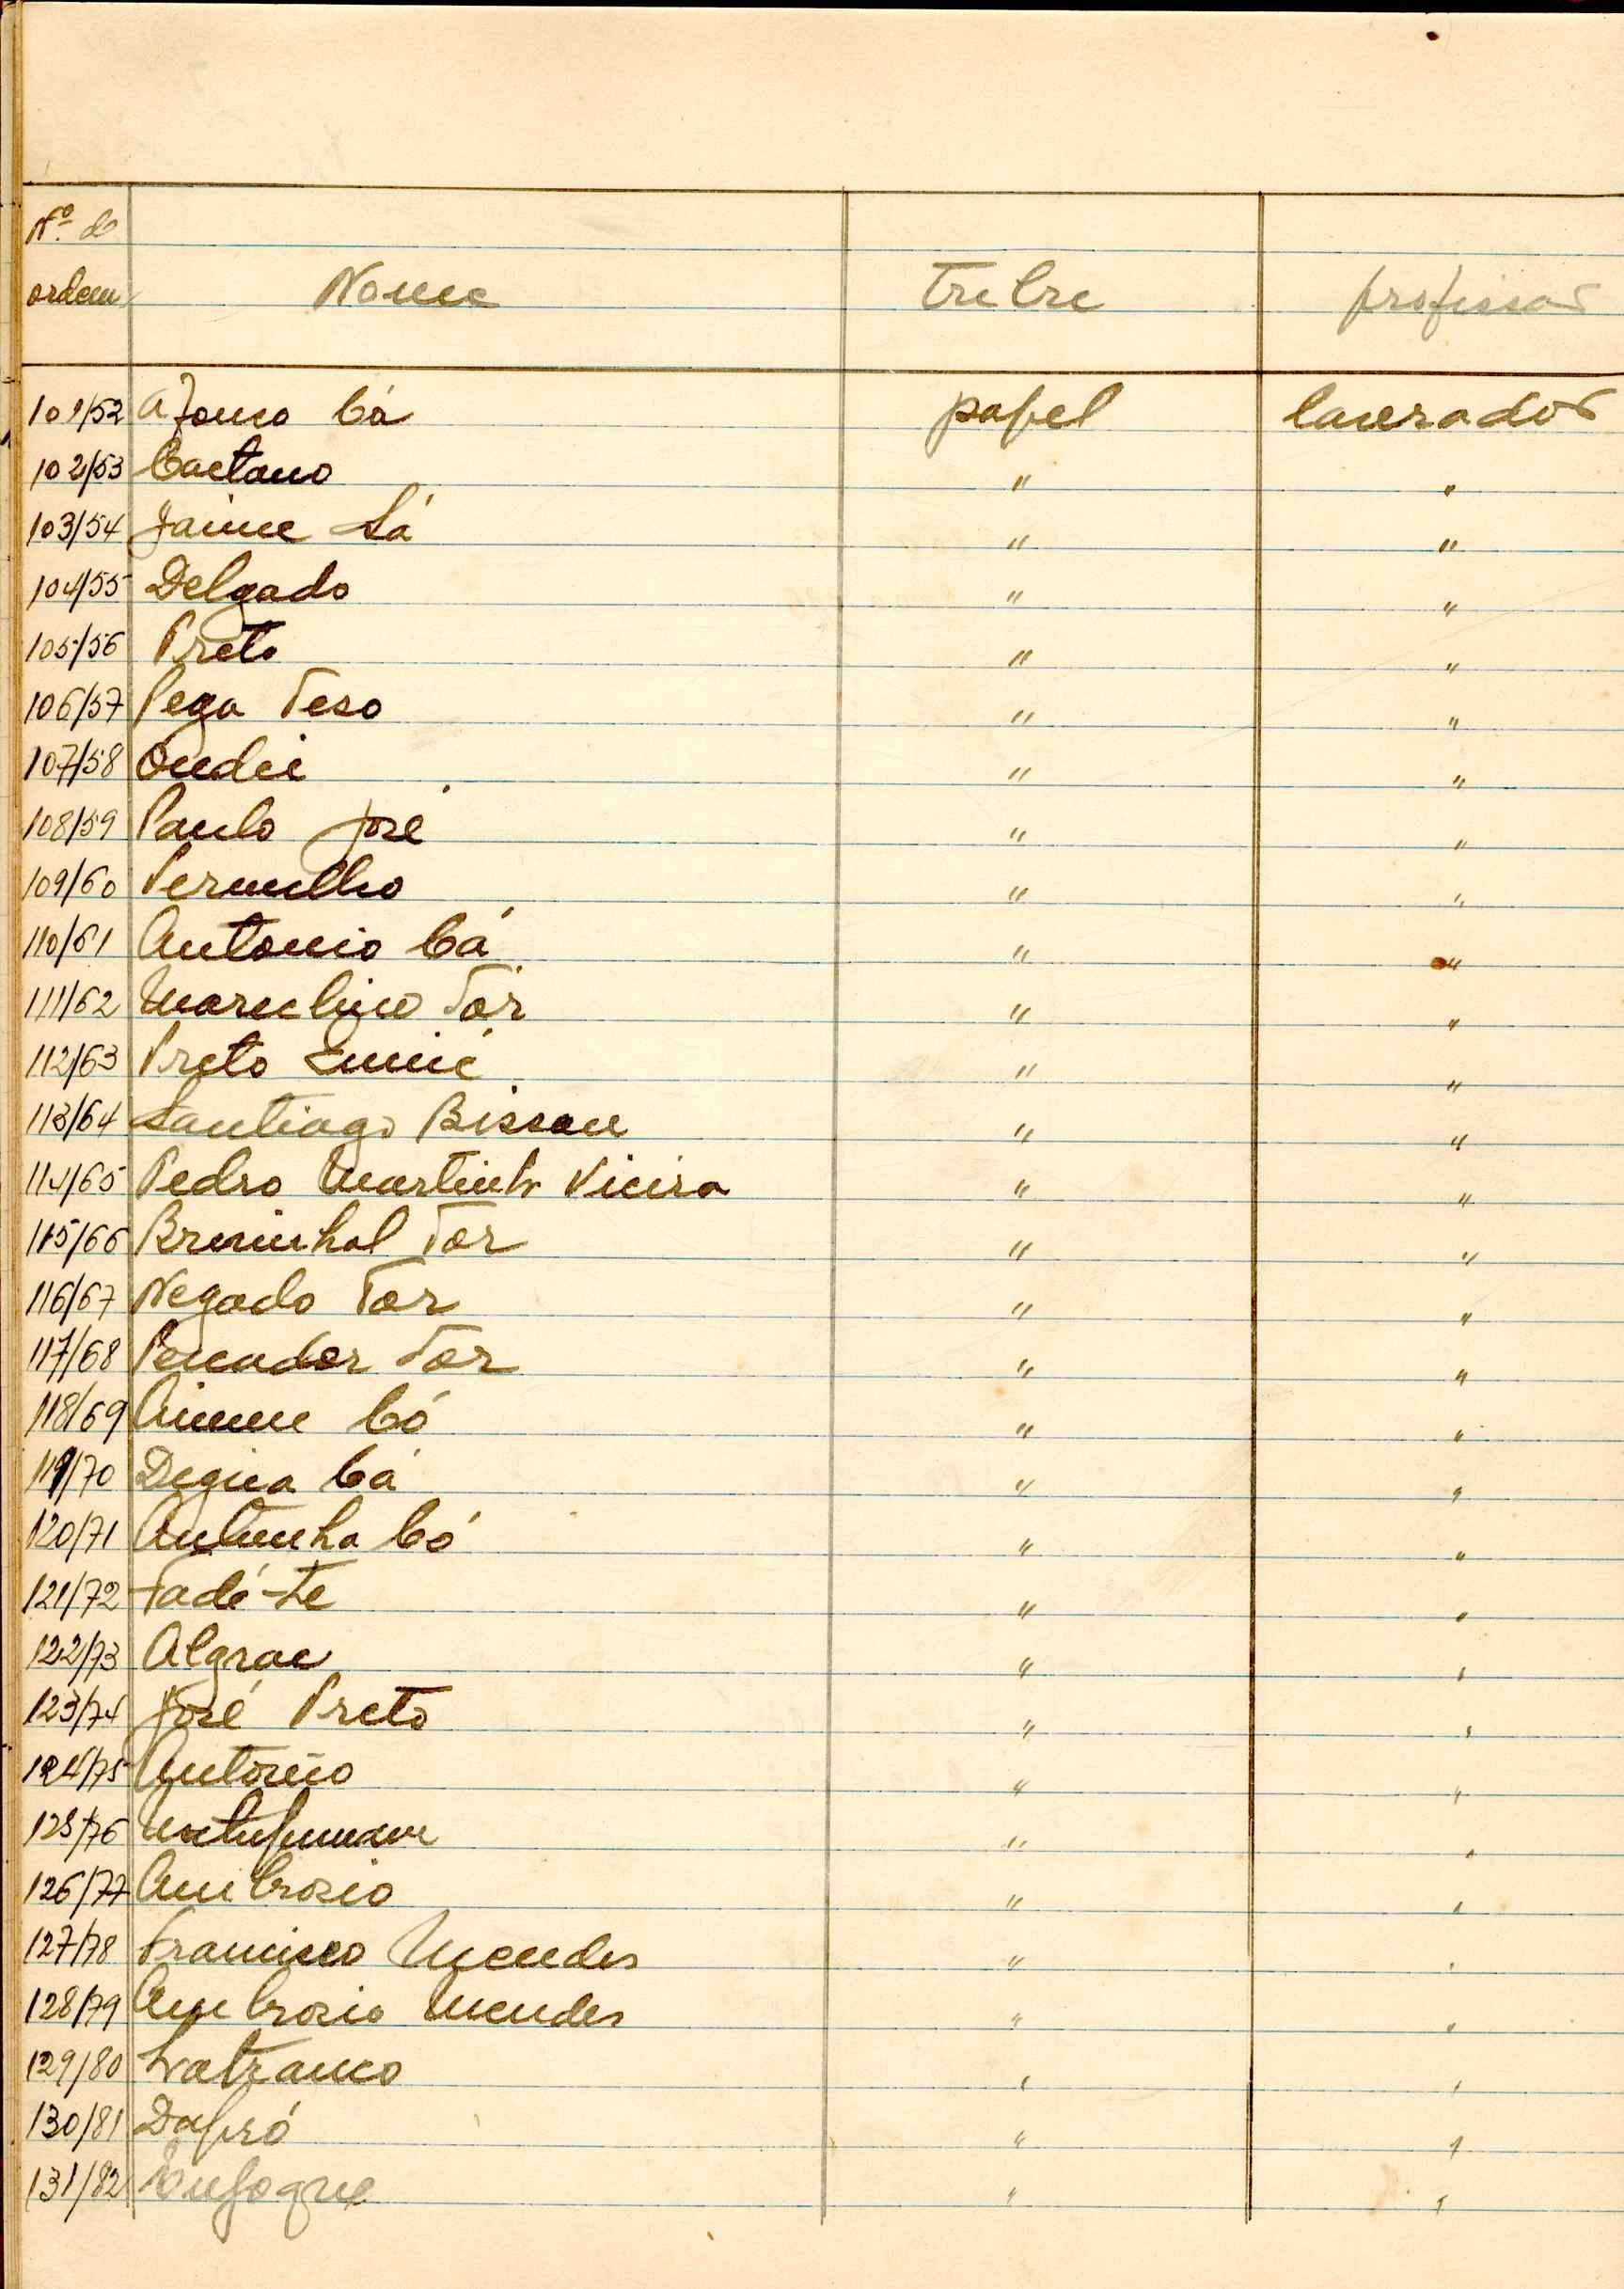 Nº de
ordem Nome Tribu profissão
101/52 Afonso Cá papel lavrador
102/53 Caetano " "
103/54 Jaime Sá " "
104/55 Delgado " "
105/56 Preto " "
106/57 Pega Teso " "
107/58 Ondei " "
108/59 Paulo José " "
109/60 Vermelho " "
110/61 Antonio Cá " "
111/62 Marcelino Tór " "
112/63 Preto " "
113/64 Santiago Bissau " "
114/65 Pedro Martinho Vieira " "
115/66 Tor " "
116/67 Negado Tor " "
117/68 Pescador Tor " "
118/69 Có " "
119/70 Cá " "
120/71 Antonha Có " "
121/72 Fadé-te " "
122/73 " "
123/74 José Preto " "
124/75 Antonio " "
125/76 " "
126/77 Ambrosio " "
127/78 Francisco Mendes " "
128/79 Ambrosio Mendes " "
129/80 " "
130/81 Dapró " "
131/82 " "